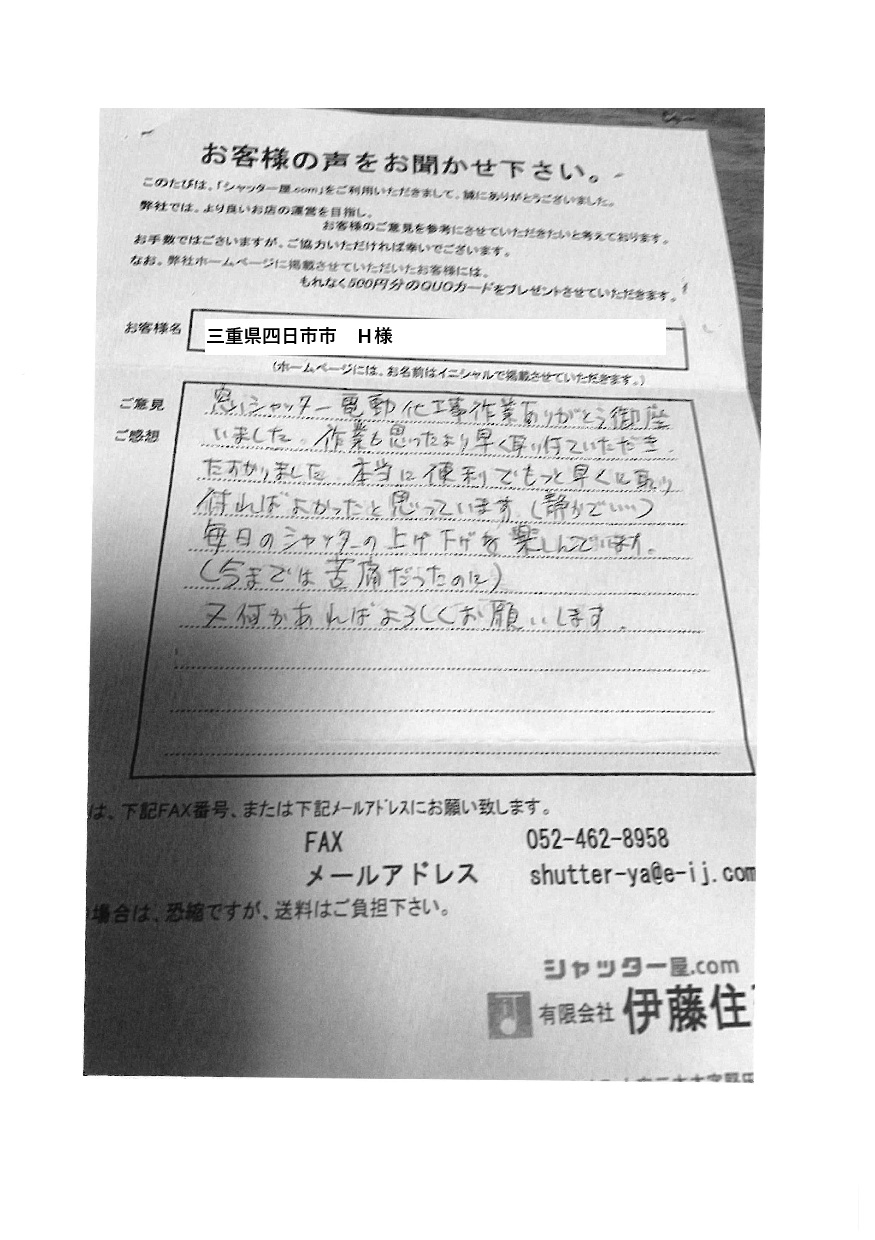 お客様の声をお聞かせ下さい。
このたびは、「シャッター屋.com」をご利用いただきまして、誠にありがとうございました。
弊社では、より良いお店の運営を目指し、
お客様のご意見を参考にさせていただきたいと考えております。
お手数ではございますが、ご協力いただければ幸いでございます。
なお、弊社ホームページに掲載させていただいたお客様には、
もれなく500円分のQUOカードをプレゼントさせていただきます。
お客様名
三重県四日市市 H様
(ホームページには、お名前はイニシャルで掲載させていただきます。)
ご意見
ご感想
窓シャッター電動化工事作業ありがとう御座
いました。作業も思ったより早く取り付ていただき、
たすかりました。本当に便利でもっと早くに取り
付ればよかったと思っています。(静かでい…)
毎日のシャッターの上げ下げを楽しんでいます。
(今までは苦痛だったのに)
又何かあればよろしくお願いします。
は、下記FAX番号、または下記メールアドレスにお願い致します。
FAX 052-462-8958
メールアドレス shutter-ya@e-ij.com
場合は、恐縮ですが、送料はご負担下さい。
シャッター屋.com
有限会社 伊藤住